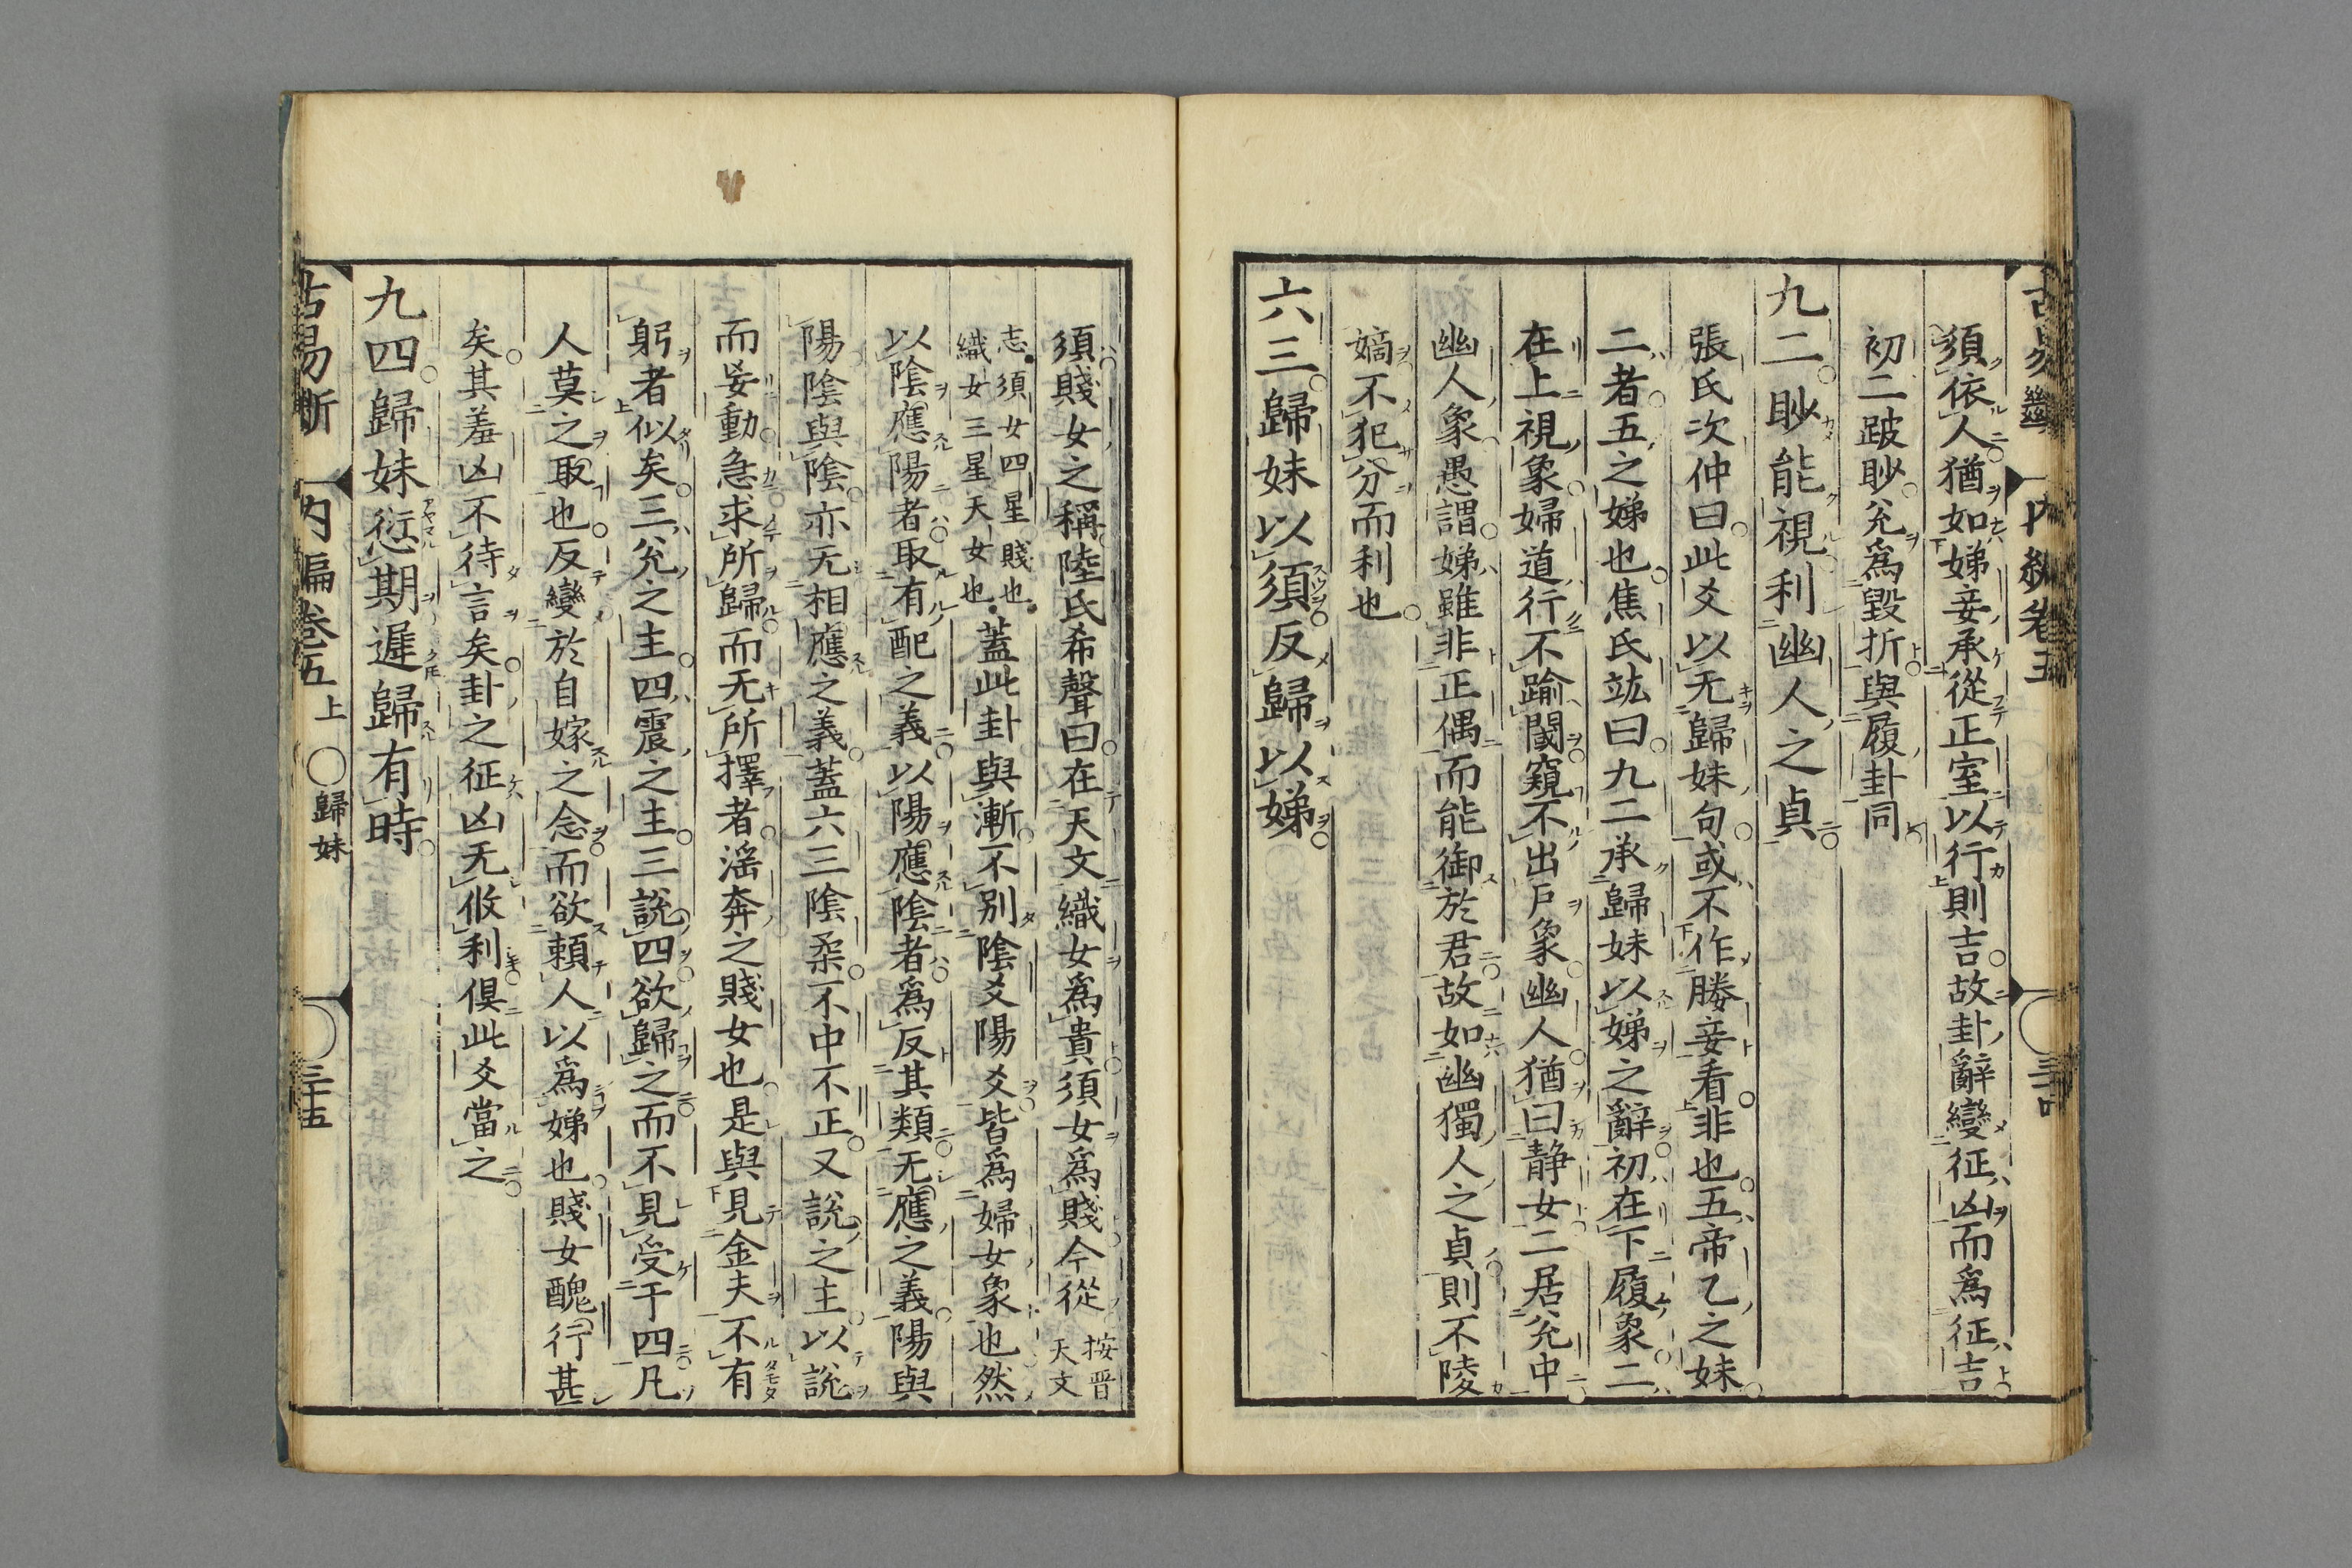 須依人猶如娣妾承從正室以行則吉故卦辭變征凶而為征吉
初二跛眇兊為毀折與履卦同
九二眇能視利幽人之貞
張氏次仲曰此爻以无歸妹句或不作媵妾看非也五帝乙之妹
二者五之娣也焦氏竑曰九二承歸妹以娣之辭初在下履象二
在上視象婦道行不踰閾窺不出戶象幽人猶曰静女二居兊中
幽人象愚謂娣雖非正偶而能御於君故如幽獨人之貞則不陵
嫡不犯分而利也
六三歸妹以須反歸以娣
須賤女之稱陸氏希聲曰在天文織女為貴須女為賤今從 按晋天文
志須女四星賤也織女三星天女也 蓋此卦與漸不別陰爻陽爻皆為婦女象也然
以陰應陽者取有配之義以陽應陰者為反其類无應之義陽與
陽陰與陰亦无相應之義蓋六三陰柔不中不正又說之主以說
而妄動急求所歸而无所擇者滛奔之賤女也是與見金夫不有
躬者似矣三兊之主四震之主三說四欲歸之而不見受于四凡
人莫之取也反變於自嫁之念而欲頼人以為娣也賤女醜行甚
矣其羞凶不待言矣卦之征凶无攸利俱此爻當之
九四歸妹愆期遲歸有時
古易斷 内編卷五 上 ○歸妹 三十五